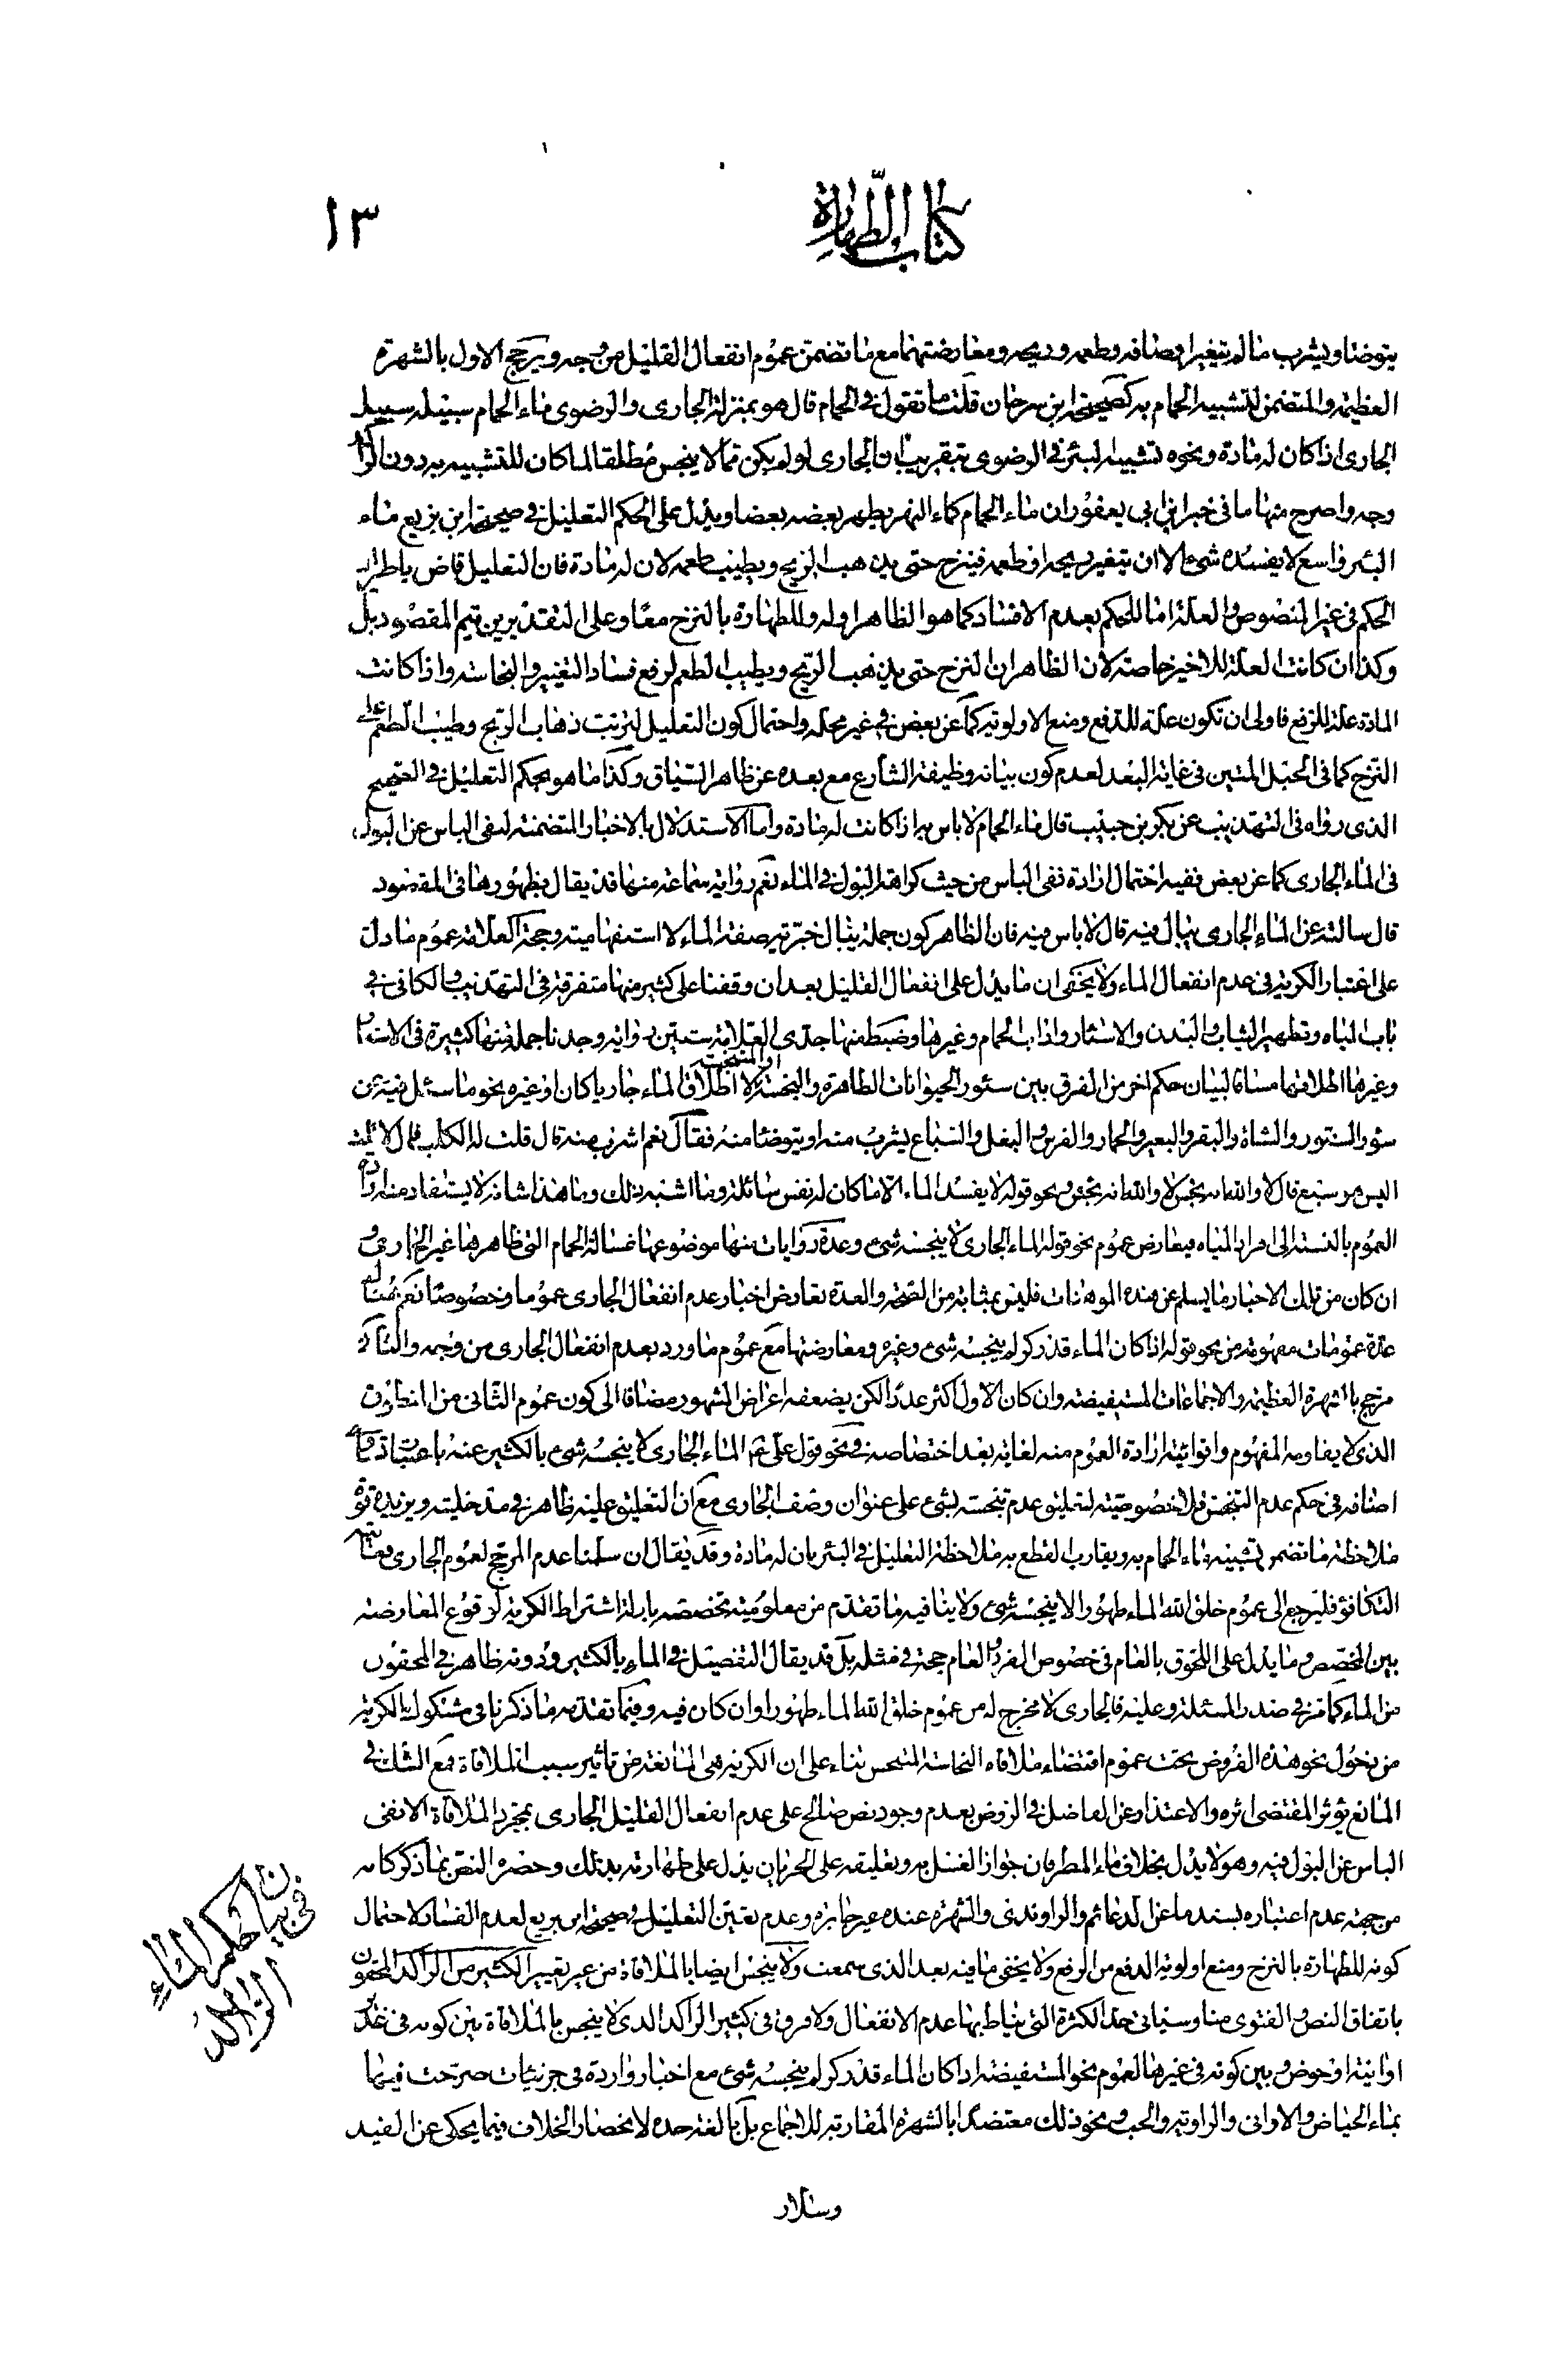 كتاب الطّهارة
١٣
يتوضا ويشرب ما لم يتغير اوصافه وطعمه وريحه ومعارضتهما مع ما تضمن عموم انفعال القليل من وجه ويرجح الاول بالشهرة
العظيمة والمتضمن لتشبيه الحمام به كصحيحة ابن سرحان قلت ما تقول في الحمام قال هو بمنزلة الجارى والرضوى ماء الحمام سبيله سبيل
الجارى اذا كان له مادة ونحوه تشبيه البئر في الرضوى بتقريب ان الجارى لو لم يكن مما لا ينجس مطلقا لما كان للتشبيه به دون الراكد
وجه واصرح منها ما في خبر ابن ابي يعفور ان ماء الحمام كماء النهر يطهر بعضه بعضا ويدل على الحكم التعليل في صحيحة ابن بزيع ماء
البئر واسع لا يفسده شىء الا ان يتغير ريحه او طعمه فينزح حتى يذهب الريح ويطيب طعمه لان له مادة فان التعليل قاض باطراد
الحكم في غير المنصوص والعلة اما للحكم بعدم الافساد كما هو الظاهر او له وللطهارة بالنزح معا وعلى التقديرين يتم المقصود بل
وكذا ان كانت العلة للاخير خاصة لان الظاهر ان النزح حتى يذهب الريح ويطيب الطعم لرفع فساد التغير والنجاسة واذا كانت
المادة علة للرفع فاولى ان تكون علة للدفع ومنع الاولوية كما عن بعض في غير محله واحتمال كون التعليل لترتب ذهاب الريح وطيب الطعم على
النزح كما في الحبل المتين في غاية البعد لعدم كون بيانه وظيفة الشارع مع بعده عن ظاهر السياق وكذا ما هو بحكم التعليل في الصحيح
الذى رواه في التهذيب عن بكر بن حبيب قال ماء الحمام لا باس به اذا كانت له مادة واما الاستدلال بالاخبار المتضمنة لنفى الباس عن البول
في الماء الجارى كما عن بعض ففيه احتمال ارادة نفى الباس من حيث كراهة البول في الماء نعم رواية سماعة منها قد يقال بظهورها في المقصود
قال سالته عن الماء الجارى يبال فيه قال لا باس فيه فان الظاهر كون جملة يبال خبرية صفة الماء لا استفهامية وحجة العلامة عموم ما دل
على اعتبار الكرية في عدم انفعال الماء ولا يخفى ان ما يدل على انفعال القليل بعد ان وقفنا على كثير منها متفرقة في التهذيب والكافى في
باب المياه وتطهير الثياب والبدن والاسئار واداب الحمام وغيرها وضبط منها جدى العلامة ستين رواية وجدنا جملة منها كثيرة في الاسئار
وغيرها اطلاقها مساقا لبيان حكم اخر من الفرق بين سئور الحيوانات الطاهرة والنجسة او المتنجسة لا اطلاق الماء جاريا كان او غيره نحو ما سئل فيه عن
سئور السنور والشاة والبقر والبعير والحمار والفرس والبغل والسباع يشرب منه او يتوضا منه فقال نعم اشرب منه قال قلت له الكلب قال لا قلت
اليس هو سبع قال لا والله انه نجس لا والله انه نجس ونحو قوله لا يفسد الماء الا ما كان له نفس سائلة وما اشبه ذلك وما هذا شانه لا يستفاد منه ارادة
العموم بالنسبة الى افراد المياه فيعارض عموم نحو قوله الماء الجارى لا ينجسه شىء وعدة روايات منها موضوعها غسالة الحمام التي ظاهرها غير الجارى و
ان كان من تلك الاخبار ما يسلم عن هذه الموهنات فليس بمثابة من الصحة والعدة تعارض اخبار عدم انفعال الجارى عموما وخصوصا نعم هنا لهم
عدة عمومات مفهومة من نحو قوله اذا كان الماء قدر كر لم ينجسه شىء وغيره ومعارضتها مع عموم ما ورد بعدم انفعال الجارى من وجه والثانى
مرجح بالشهرة العظيمة والاجماعات المستفيضة وان كان الاول اكثر عددا لكن يضعفه اعراض المشهور مضافا الى كون عموم الثانى من المنطوق
الذى لا يقاومه المفهوم واقوائية ارادة العموم منه لغاية بعد اختصاصه في نحو قول على ع الماء الجارى لا ينجسه شىء بالكثير عنه باعتبار
اضافه في حكم عدم التنجس فلا خصوصية لتعليق عدم تنجسه بشىء على عنوان وصف الجارى مع ان التعليق عليه ظاهر في مدخليته ويزيده قوة
ملاحظة ما تضمن تشبيه ماء الحمام به ويقارب القطع به ملاحظة التعليل في البئر بان له مادة وقد يقال ان سلمنا عدم المرجح لعموم الجارى
التكافؤ فليرجع الى عموم خلق الله الماء طهورا لا ينجسه شىء ولا ينافيه ما تقدم من معلومية تخصصه بادلة اشتراط الكرية لوقوع المعارضة
بين المخصص وما يدل على اللحوق بالعام في خصوص الفرد والعام حجة في مثله بل قد يقال التفصيل في الماء بالكثير ودونه ظاهر في المحقون
من الماء كما مر في صدر المسئلة وعليه فالجارى لا مخرج له من عموم خلق الله الماء طهورا وان كان فيه وفيما تقدم ما ذكرنا في مشكوك الكرية
من دخول نحو هذه الفروض تحت عموم اقتضاء ملاقاة النجاسة التنجس بناء على ان الكرية هى المانعة عن تاثير سبب الملاقاة فمع الشك في
المانع يؤثر المقتضى اثره والاعتذار عن الفاضل في الروض بعدم وجود نص صالح على عدم انفعال القليل الجارى بمجرد الملاقاة الا نفى
الباس عن البول فيه وهو لا يدل بخلاف ماء المطر فان جواز الغسل به وتعليقه على الجريان يدل على طهارته بذلك وحصره النص بما ذكر كانه
من جهة عدم اعتباره بسند ما عن الدعائم والراوندى والشهرة عنده غير جابرة وعدم تعين التعليل في صحيحة ابن بزيع لعدم الفساد لاحتمال
كونه للطهارة بالنزح ومنع اولوية الدفع من الرفع ولا يخفى ما فيه بعد الذى سمعت ولا ينجس ايضا بالملاقاة من غير تغيير الكثير من الراكد المحقون
باتفاق النص والفتوى منا وسياتى حد الكثرة التي يناط بها عدم الانفعال ولا فرق في كثير الراكد الذى لا ينجس بالملاقاة بين كونه في غدير
او انية او حوض وبين كونه في غيرها لعموم نحو المستفيضة اذا كان الماء قدر كر لم ينجسه شىء مع اخبار واردة في جزئيات صرحت فيها
بماء الحياض والاوانى والراوية والحب ونحو ذلك معتضدا بالشهرة المقاربة للاجماع بل بالغة حده لانحصار الخلاف فيما يحكى عن المفيد
وسلار
في بيان حكم الماء
الراكد